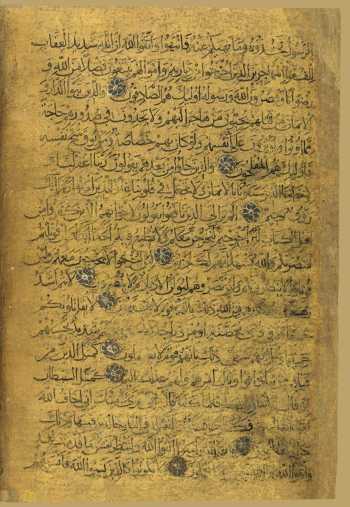 الرسول فخذوه وما نهيكم عنه فانتهوا واتقوا الله ان الله شديد العقاب
للفقراء المهاجرين الذين اخرجوا من ديارهم واموالهم يبتغون فضلا من الله و
رضوانا وينصرون الله ورسوله اولئك هم الصادقون والذين تبوؤا الدار
والايمان من قبلهم يحبون من هاجر اليهم ولا يجدون في صدورهم حاجة
مما اوتوا ويؤثرون على انفسهم ولو كان بهم خصاصة ومن يوق شح نفسه
فاولئك هم المفلحون والذين جاؤا من بعدهم يقولون ربنا اغفر لنا
و لاخواننا الذين سبقونا بالايمان ولا تجعل في قلوبنا غلا للذين امنوا ربنا انك
رؤف رحيم الم تر الى الذين نافقوا يقولون لاخوانهم الذين كفروا من
اهل الكتاب لئن اخرجتم لنخرجن معكم ولا نطيع فيكم احدا ابدا وان قوتلتم
لننصرنكم والله يشهد انهم لكاذبون لئن اخرجوا لا يخرجون معهم ولئن
قوتلوا لا ينصرونهم ولئن نصروهم ليولن الادبار ثم لا ينصرون لانتم اشد
رهبة في صدورهم من الله ذلك بانهم قوم لا يفقهون لا يقاتلونكم
جميعا الا في قرى محصنة او من وراء جدر باسهم بينهم شديد تحسبهم
جميعا وقلوبهم شتى ذلك بانهم قوم لا يعقلون كمثل الذين من
قبلهم قريبا ذاقوا وبال امرهم ولهم عذاب اليم كمثل الشيطان
اذ قال للانسان اكفر فلما كفر قال اني بريء منك اني اخاف الله
رب العالمين فكان عاقبتهما انهما في النار خالدين فيها وذلك
جزاء الظالمين يا ايها الذين امنوا اتقوا الله ولتنظر نفس ما قدمت لغد
واتقوا الله ان الله خبير بما تعملون ولا تكونوا كالذين نسوا الله فانسيهم